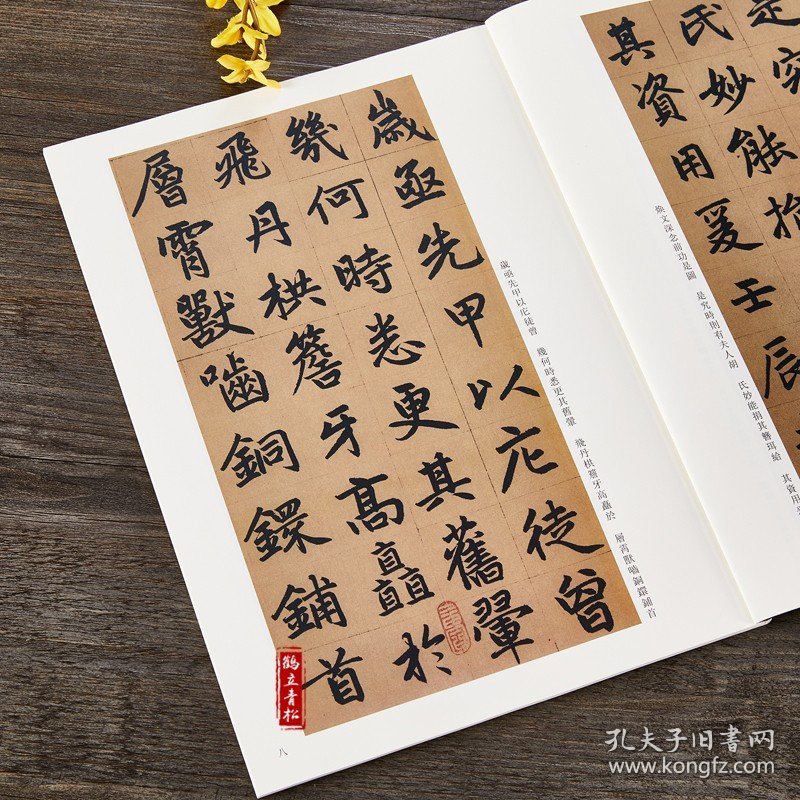 是究
氏妙能捐
其資用爰壬辰
煥文深念前功是圖　是究時則有夫人胡　氏妙能捐其簪珥給　其資用
歲亟先甲以庀徒曾
幾何時悉更其舊翬
飛丹栱簷牙高矗於
層霄獸嚙銅鐶鋪首
歲亟先甲以庀徒曾　幾何時悉更其舊翬　飛丹栱簷牙高矗於　層霄獸嚙銅鐶鋪首
八
鶴立青松
孔夫子旧書网
www.kongfz.com